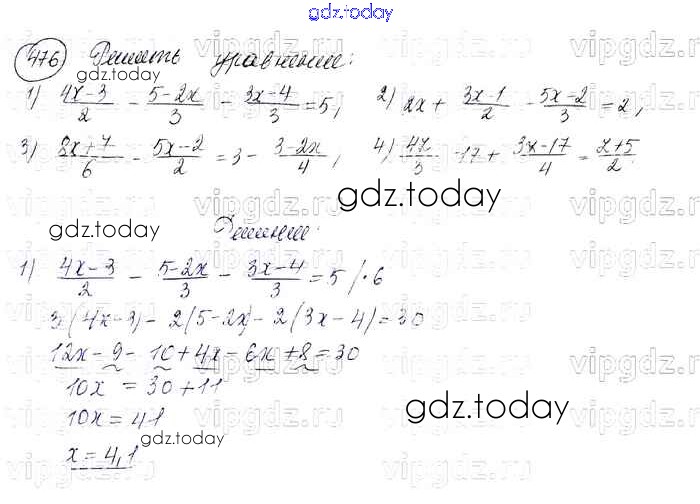 gdz.today
476 Решить уравнение:
gdz.today
1) (4x-3)/2 - (5-2x)/3 - (3x-4)/3 = 5, 2) 2x + (3x-1)/2 - (5x-2)/3 = 2,
3) (8x+7)/6 - (5x-2)/2 = 3 - (3-2x)/4, 4) /3 - 17 + (3x-17)/4 = (x+5)/2.
gdz.today
gdz.today
Решение:
1) (4x-3)/2 - (5-2x)/3 - (3x-4)/3 = 5 /·6
3(4x-3) - 2(5-2x) - 2(3x-4) = 30
12x - 9 - 10 + 4x - 6x + 8 = 30
10x = 30 + 11
10x = 41
gdz.today
gdz.today
x = 4,1
vipgdz.ru